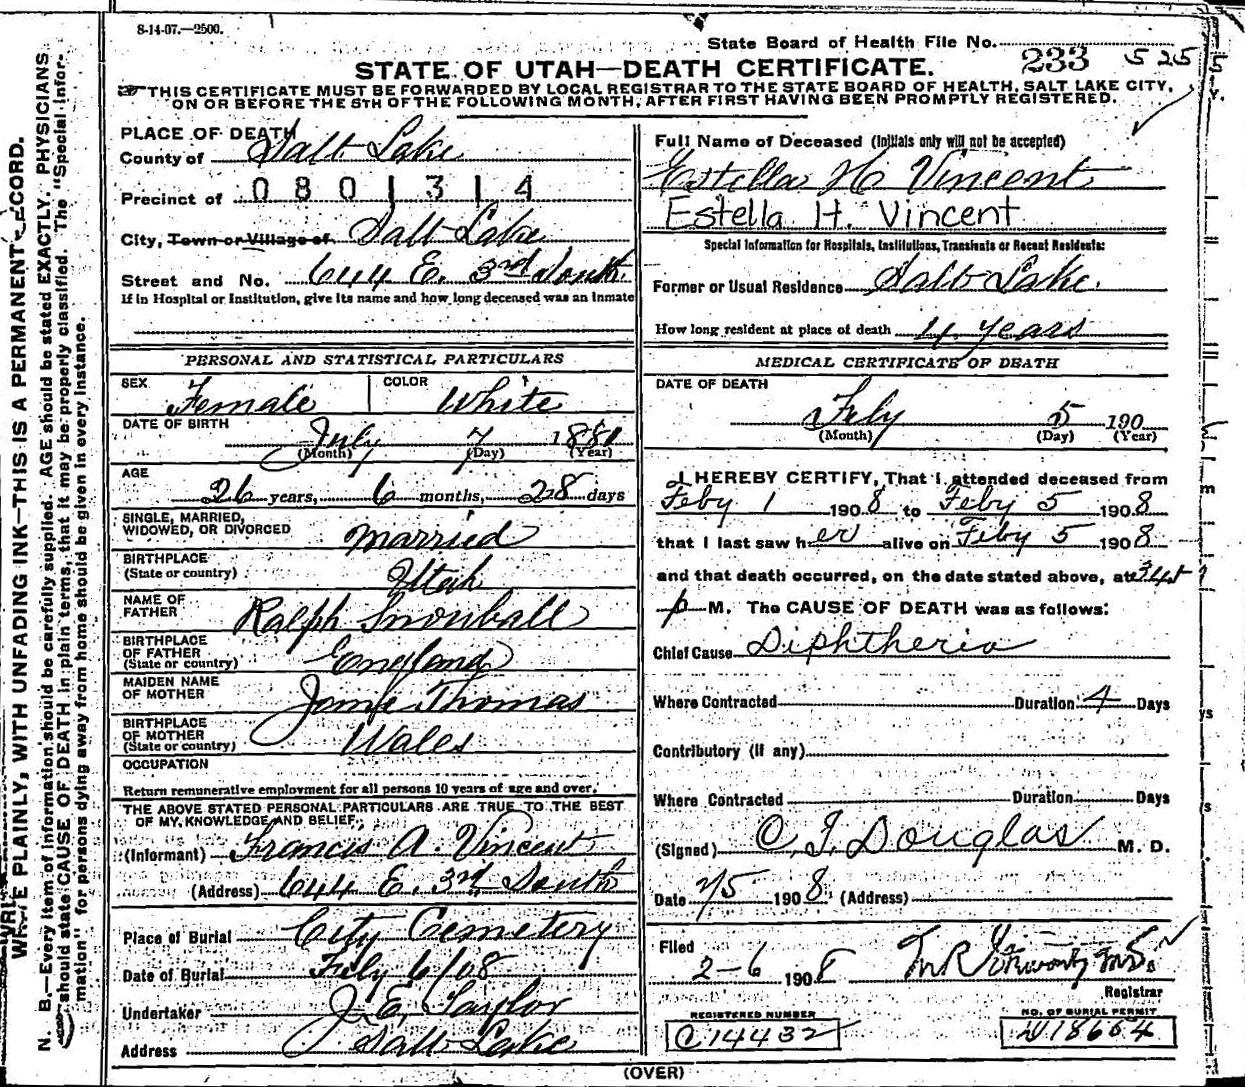 8-14-07.—2500.
State Board of Health File No. 233 525
STATE OF UTAH—DEATH CERTIFICATE.
THIS CERTIFICATE MUST BE FORWARDED BY LOCAL REGISTRAR TO THE STATE BOARD OF HEALTH, SALT LAKE CITY,
ON OR BEFORE THE 5TH OF THE FOLLOWING MONTH, AFTER FIRST HAVING BEEN PROMPTLY REGISTERED.
WRITE PLAINLY, WITH UNFADING INK—THIS IS A PERMANENT RECORD.
N. B.—Every item of information should be carefully supplied. AGE should be stated EXACTLY. PHYSICIANS
should state CAUSE OF DEATH in plain terms, that it may be properly classified. The "Special Infor-
mation" for persons dying away from home should be given in every instance.
PLACE OF DEATH
County of Salt Lake
Precinct of 080 1 3 1 4
City, Town or Village of Salt Lake
Street and No. 644 E. 3rd South
If in Hospital or Institution, give its name and how long deceased was an Inmate
PERSONAL AND STATISTICAL PARTICULARS
SEX Female COLOR White
DATE OF BIRTH July 7 1881
(Month) (Day) (Year)
AGE 26 years, 6 months, 28 days
SINGLE, MARRIED,
WIDOWED, OR DIVORCED Married
BIRTHPLACE
(State or country) Utah
NAME OF
FATHER Ralph Snowball
BIRTHPLACE
OF FATHER
(State or country) England
MAIDEN NAME
OF MOTHER Jane Thomas
BIRTHPLACE
OF MOTHER
(State or country) Wales
OCCUPATION
Return remunerative employment for all persons 10 years of age and over.
THE ABOVE STATED PERSONAL PARTICULARS ARE TRUE TO THE BEST
OF MY KNOWLEDGE AND BELIEF.
(Informant) Francis A. Vincent
(Address) 644 E. 3rd South
Place of Burial City Cemetery
Date of Burial Feby 6/08
Undertaker J. E. Taylor
Address Salt Lake
Full Name of Deceased (Initials only will not be accepted)
Estella H Vincent
Estella H. Vincent
Special Information for Hospitals, Institutions, Transients or Recent Residents:
Former or Usual Residence Salt Lake.
How long resident at place of death 4 years
MEDICAL CERTIFICATE OF DEATH
DATE OF DEATH
Feby 5 190
(Month) (Day) (Year)
I HEREBY CERTIFY, That I attended deceased from
Feby 1 1908 to Feby 5 1908
that I last saw her alive on Feby 5 1908
and that death occurred, on the date stated above, at 345
p M. The CAUSE OF DEATH was as follows:
Chief Cause Diphtheria
Where Contracted Duration 4 Days
Contributory (if any)
Where Contracted Duration Days
(Signed) C. F. Douglas M. D.
Date 2/5 1908 (Address)
Filed
2-6 1908
Registrar
REGISTERED NUMBER
C 14432
NO. OF BURIAL PERMIT
18664
(OVER)